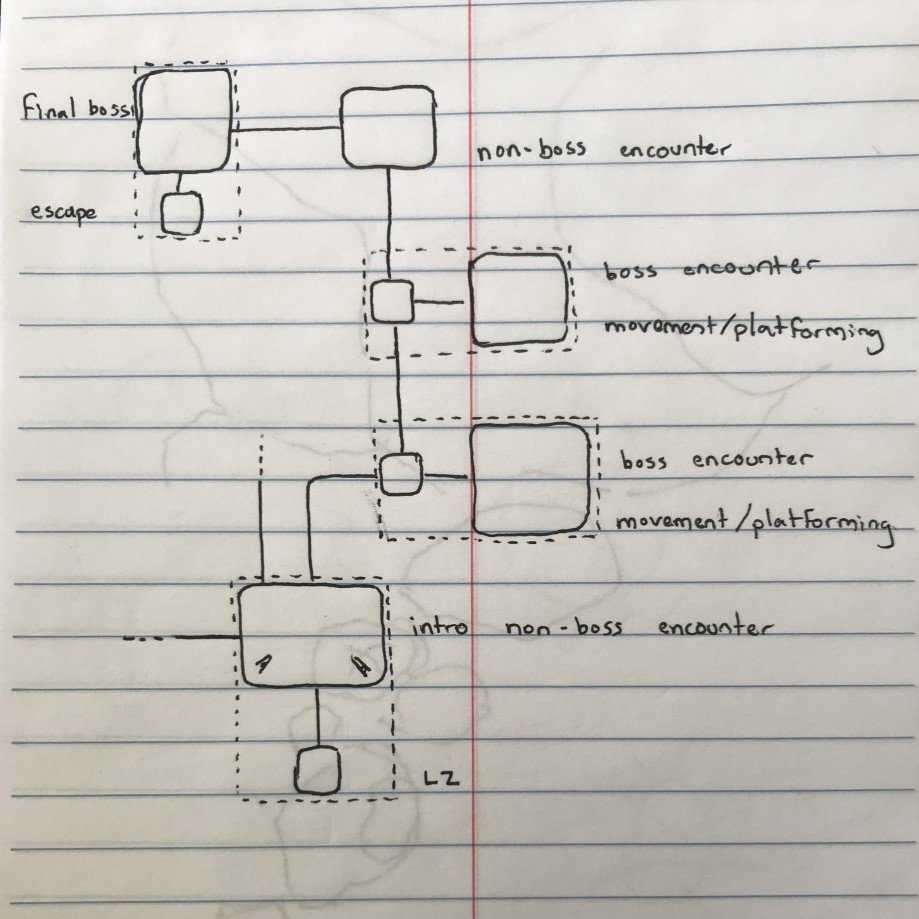 Final boss
non-boss encounter
escape
boss encounter
movement/platforming
boss encounter
movement/platforming
intro non-boss encounter
LZ